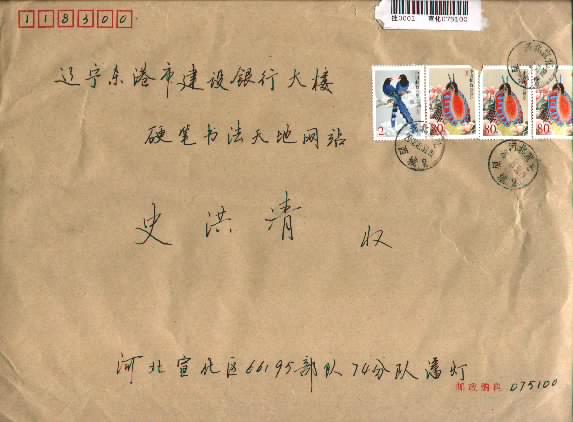 118300
挂0001 宣化075100
辽宁东港市建设银行大楼
硬笔书法天地网站
史洪清 收
河北宣化区66195部队74分队潘灯
邮政编码 075100
2
80
80
80